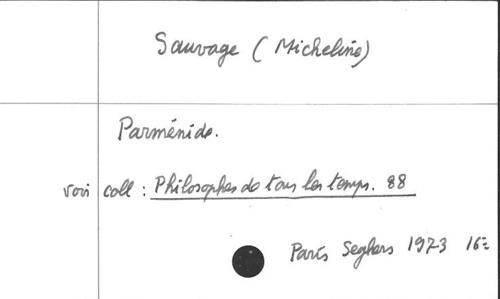 Sauvage (Micheline)
Parménide.
voir coll : Philosophes de tous les temps. 88
Paris Seghers 1973 16=